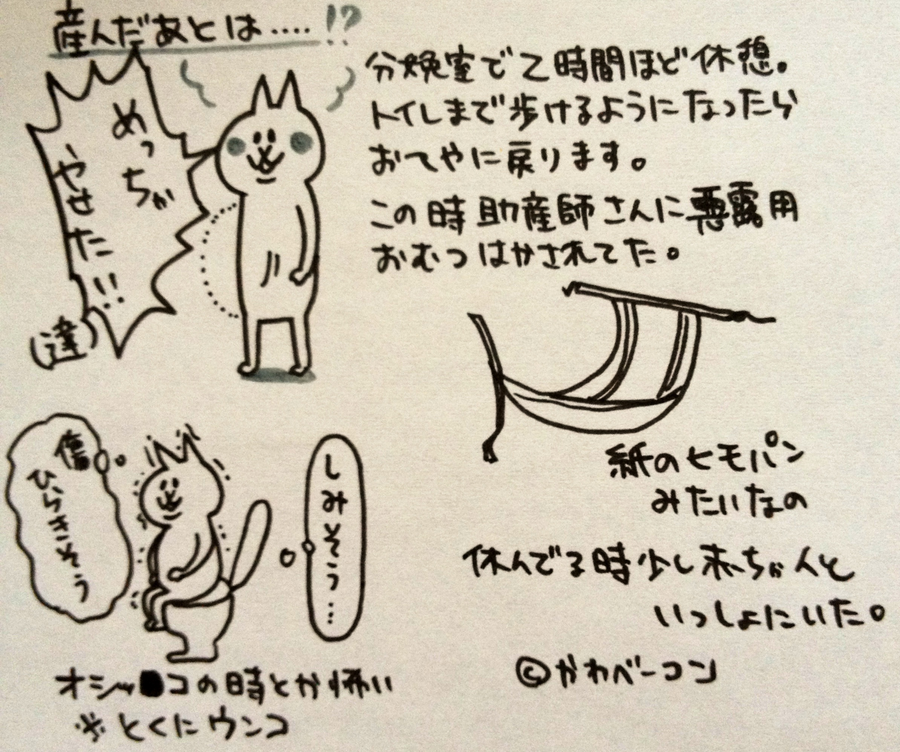 産んだあとは.....!?
めっちゃ
やせた!!
(違)
分娩室で2時間ほど休憩。
トイレまで歩けるようになったら
おへやに戻ります。
この時助産師さんに悪露用
おむつはかされてた。
紙のヒモパン
みたいなの
休んでる時少し赤ちゃんと
いっしょにいた。
しみそう…
傷
ひらきそう
オシッコの時とか怖い
※とくにウンコ
©かわベーコン